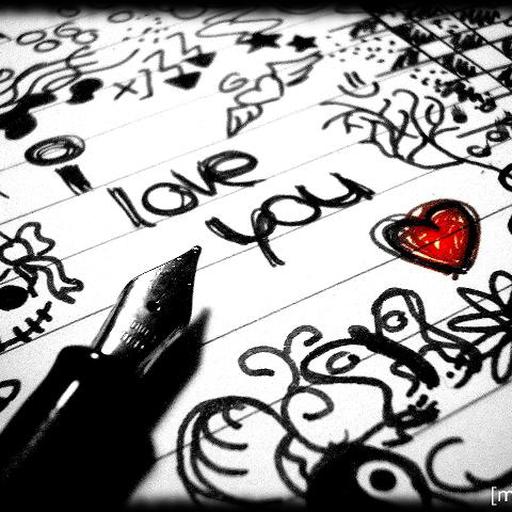 I love
you
[m